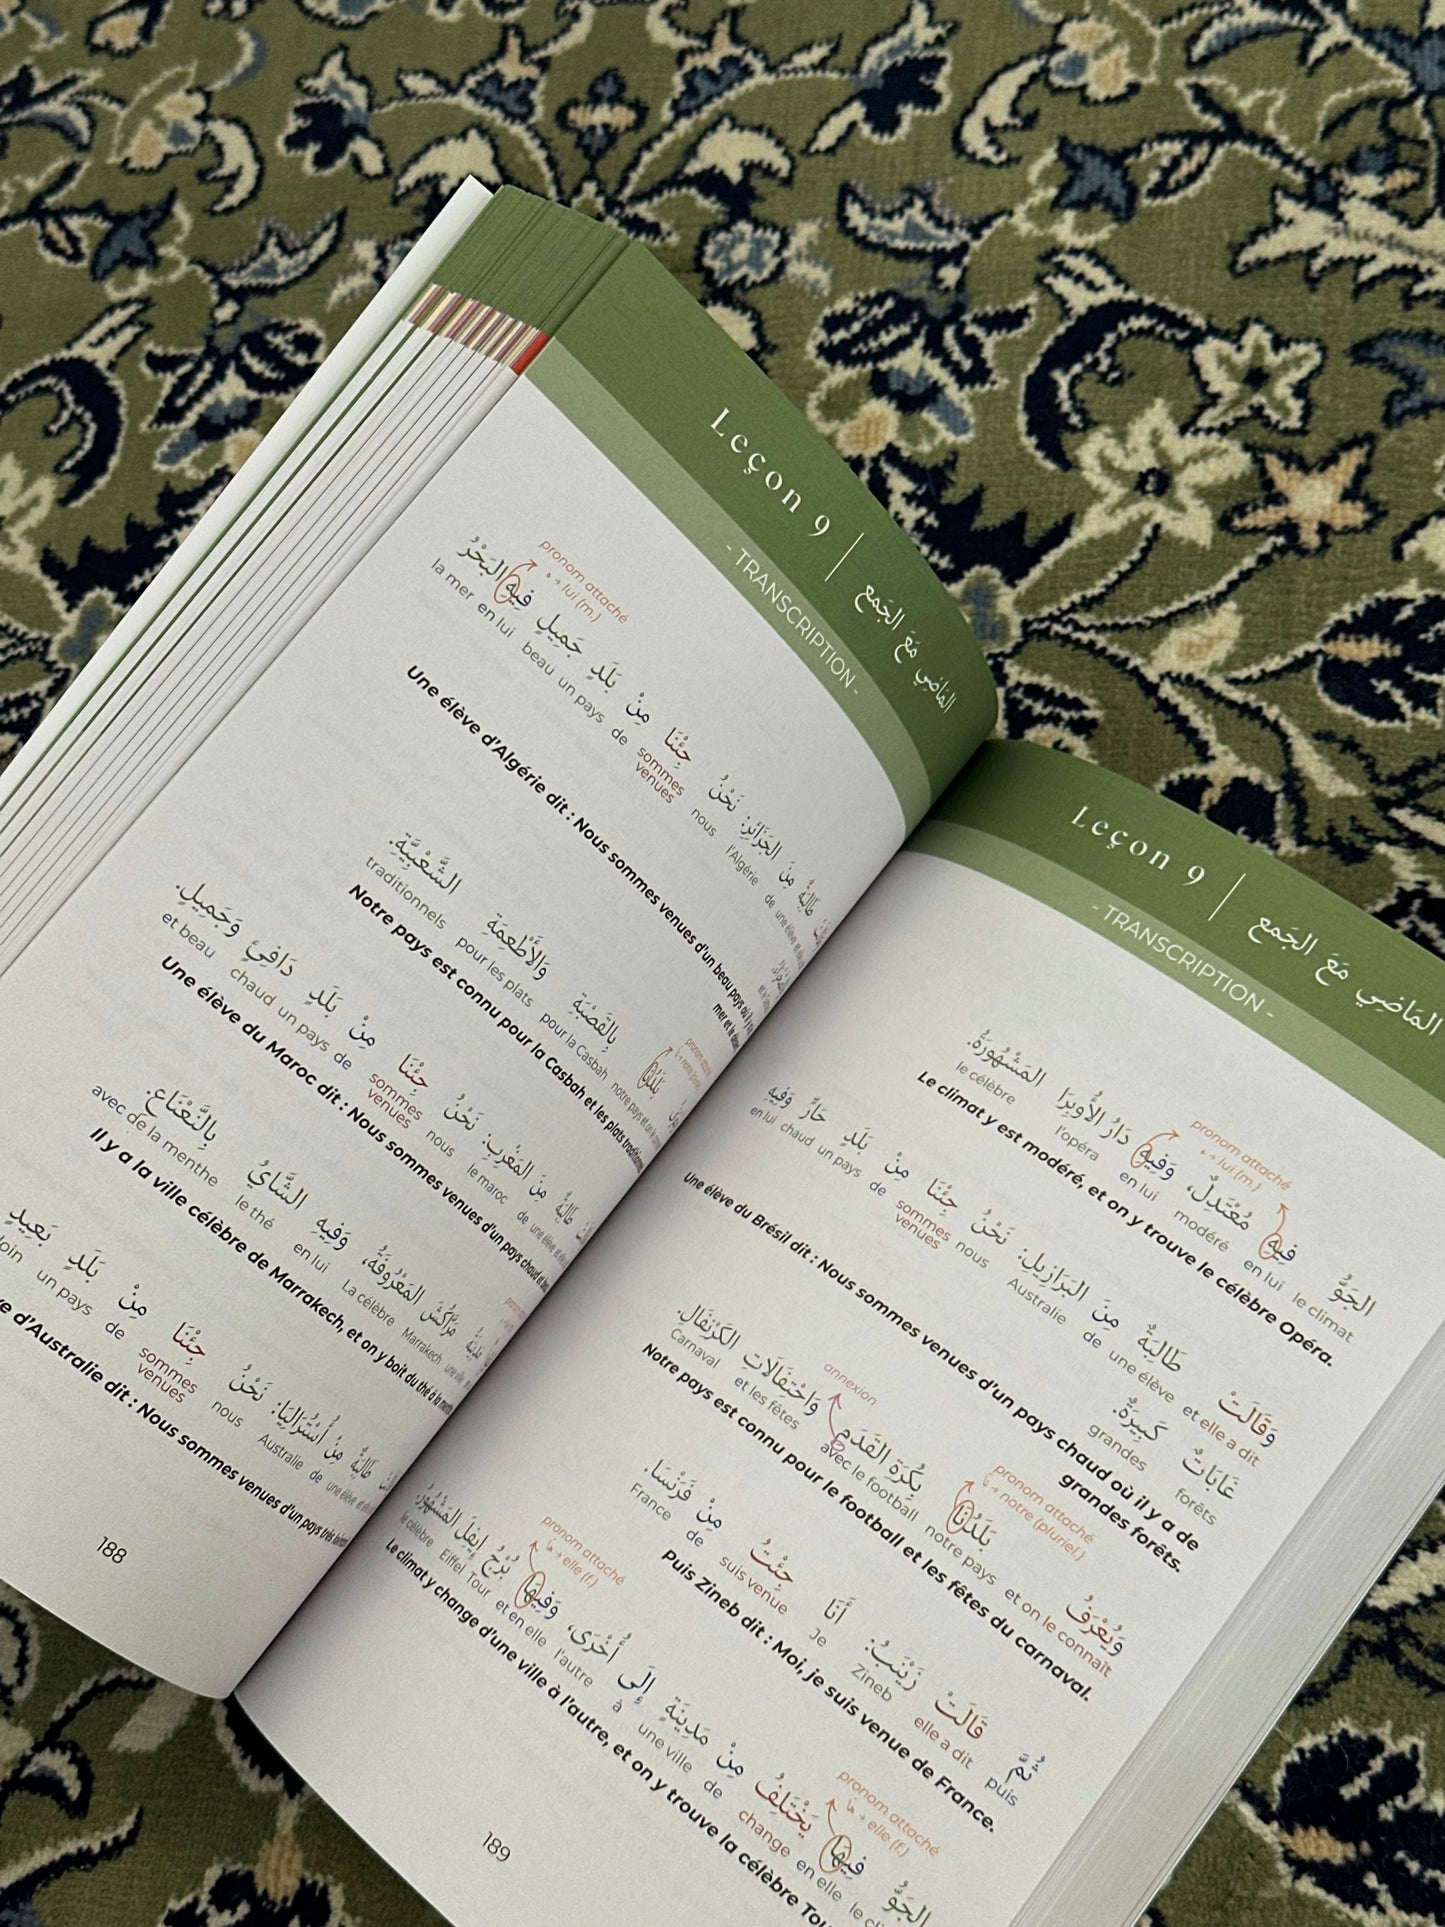 Leçon 9 | المَاضِي مَعَ الجَمع
- TRANSCRIPTION -
pronom attaché
ه → lui (m.)
طَالِبَةٌ مِنَ الجَزَائِرِ: نَحْنُ جِئْنَا مِنْ بَلَدٍ جَمِيلٍ فِيهِ البَحْرُ
la mer en lui beau un pays de sommes venues nous l'Algérie de une élève
Une élève d'Algérie dit : Nous sommes venues d'un beau pays où il y a
mer et le
pronom attaché
نا → notre
بَلَدُنَا بِالقَصْبَةِ وَالْأَطْعِمَةِ الشَّعْبِيَّةِ.
traditionnels pour les plats pour la Casbah notre pays et on le
Notre pays est connu pour la Casbah et les plats traditionnels
طَالِبَةٌ مِنَ المَغْرِبِ: نَحْنُ جِئْنَا مِنْ بَلَدٍ دَافِئٍ وَجَمِيلٍ.
et beau chaud un pays de sommes venues nous le maroc de une élève
Une élève du Maroc dit : Nous sommes venues d'un pays chaud et
مَدِينَةُ مَرَّاكُشَ المَعْرُوفَةُ، وَفِيهِ الشَّايُ بِالنَّعْنَاعِ.
avec de la menthe le thé en lui La célèbre Marrakech une ville
Il y a la ville célèbre de Marrakech, et on y boit du thé à la menthe
طَالِبَةٌ مِنْ أُسْتُرَالِيَا: نَحْنُ جِئْنَا مِنْ بَلَدٍ بَعِيدٍ
loin un pays de sommes venues nous Australie de une élève
d'Australie dit : Nous sommes venues d'un pays très
188
Leçon 9 | المَاضِي مَعَ الجَمع
- TRANSCRIPTION -
pronom attaché
ه → lui (m.)
الجَوُّ فِيهِ مُعْتَدِلٌ، وَفِيهِ دَارُ الأُوبِرَا المَشْهُورَةُ.
le célèbre l'opéra en lui modéré en lui le climat
Le climat y est modéré, et on y trouve le célèbre Opéra.
وَقَالَتْ طَالِبَةٌ مِنَ البَرَازِيلِ: نَحْنُ جِئْنَا مِنْ بَلَدٍ حَارٍّ وَفِيهِ
en lui chaud un pays de sommes venues nous Australie de une élève et elle a dit
غَابَاتٌ كَبِيرَةٌ.
grandes forêts
Une élève du Brésil dit : Nous sommes venues d'un pays chaud où il y a de
grandes forêts.
annexion
pronom attaché
نا → notre (pluriel.)
وَيُعْرَفُ بَلَدُنَا بِكُرَةِ القَدَمِ وَاحْتِفَالَاتِ الكَرْنَفَالِ.
Carnaval et les fêtes avec le football notre pays et on le connaît
Notre pays est connu pour le football et les fêtes du carnaval.
ثُمَّ قَالَتْ زَيْنَبُ: أَنَا جِئْتُ مِنْ فَرَنْسَا.
France de suis venue Je Zineb elle a dit puis
Puis Zineb dit : Moi, je suis venue de France.
pronom attaché
ها → elle (f.)
pronom attaché
ها → elle (f.)
الجَوُّ فِيهَا يَخْتَلِفُ مِنْ مَدِينَةٍ إِلَى أُخْرَى، وَفِيهَا بُرْجُ إِيفِلَ المَشْهُورُ.
le célèbre Eiffel Tour et en elle l'autre à une ville de change en elle
Le climat y change d'une ville à l'autre, et on y trouve la célèbre
189